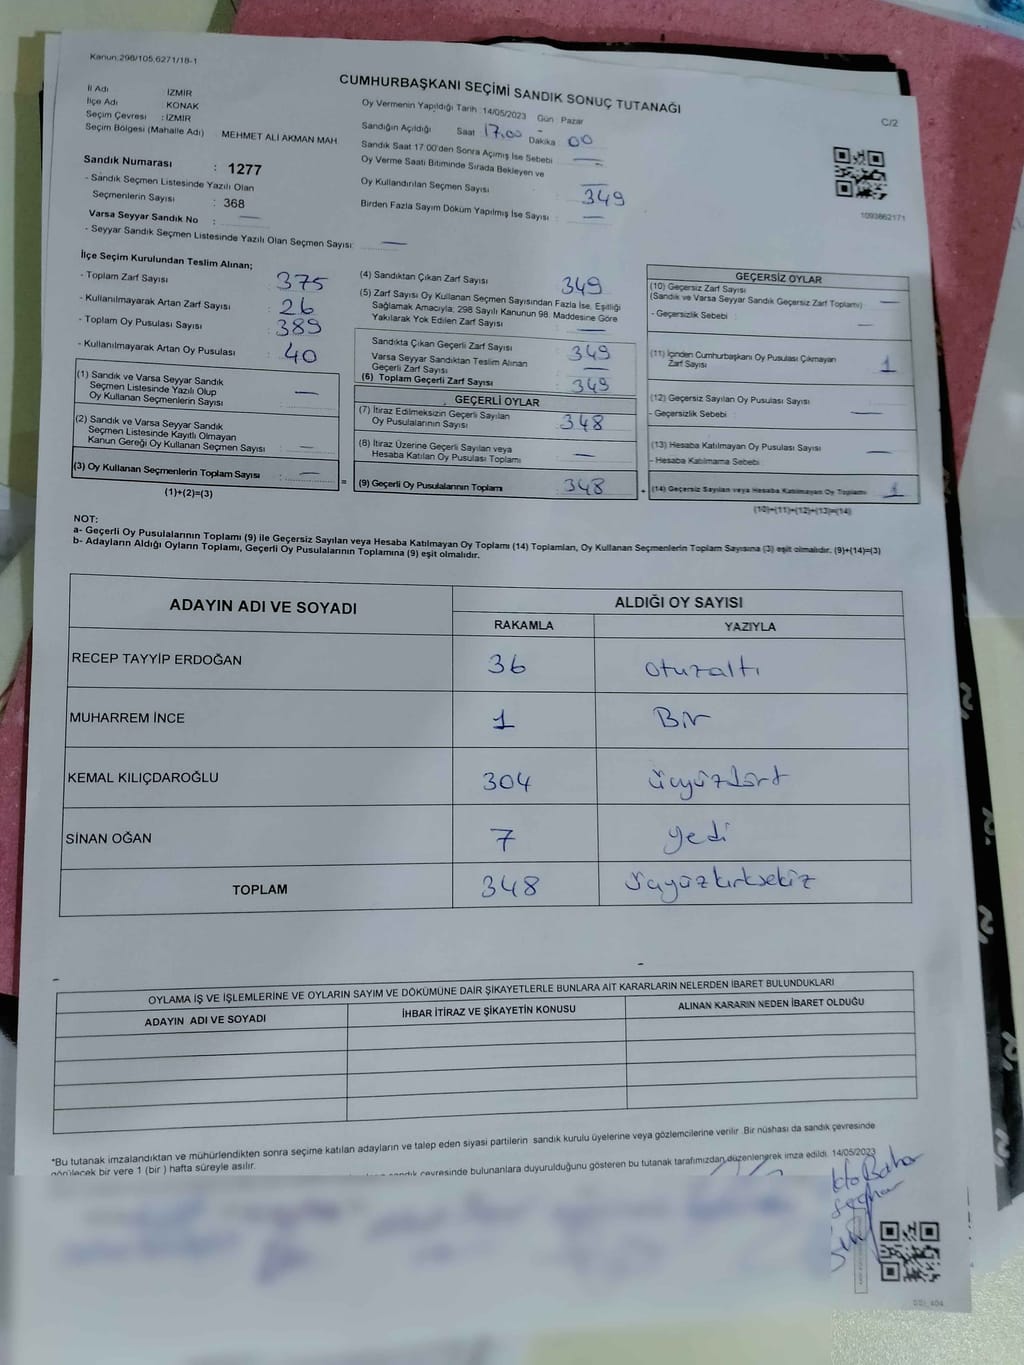 Kanun:298/105,6271/18-1
CUMHURBAŞKANI SEÇİMİ SANDIK SONUÇ TUTANAĞI
C/2
İl Adı : İZMİR
İlçe Adı : KONAK
Seçim Çevresi : İZMİR
Seçim Bölgesi (Mahalle Adı) MEHMET ALİ AKMAN MAH.
Sandık Numarası : 1277
- Sandık Seçmen Listesinde Yazılı Olan
Seçmenlerin Sayısı : 368
Varsa Seyyar Sandık No : —
- Seyyar Sandık Seçmen Listesinde Yazılı Olan Seçmen Sayısı: —
Oy Vermenin Yapıldığı Tarih :14/05/2023 Gün : Pazar
Sandığın Açıldığı Saat 17.00 Dakika 00
Sandık Saat 17.00'den Sonra Açımış İse Sebebi : —
Oy Verme Saati Bitiminde Sırada Bekleyen ve
Oy Kullandırılan Seçmen Sayısı : 349
Birden Fazla Sayım Döküm Yapılmış İse Sayısı : —
1093862171
İlçe Seçim Kurulundan Teslim Alınan;
- Toplam Zarf Sayısı : 375
- Kullanılmayarak Artan Zarf Sayısı : 26
- Toplam Oy Pusulası Sayısı : 389
- Kullanılmayarak Artan Oy Pusulası : 40
(1) Sandık ve Varsa Seyyar Sandık
Seçmen Listesinde Yazılı Olup
Oy Kullanan Seçmenlerin Sayısı : —
(2) Sandık ve Varsa Seyyar Sandık
Seçmen Listesinde Kayıtlı Olmayan
Kanun Gereği Oy Kullanan Seçmen Sayısı : —
(3) Oy Kullanan Seçmenlerin Toplam Sayısı : —
(1)+(2)=(3)
=
(4) Sandıktan Çıkan Zarf Sayısı : 349
(5) Zarf Sayısı Oy Kullanan Seçmen Sayısından Fazla İse, Eşitliği
Sağlamak Amacıyla, 298 Sayılı Kanunun 98. Maddesine Göre
Yakılarak Yok Edilen Zarf Sayısı : —
Sandıkta Çıkan Geçerli Zarf Sayısı : 349
Varsa Seyyar Sandıktan Teslim Alınan
Geçerli Zarf Sayısı : —
(6) Toplam Geçerli Zarf Sayısı : 349
GEÇERLİ OYLAR
(7) İtiraz Edilmeksizin Geçerli Sayılan
Oy Pusulalarının Sayısı : 348
(8) İtiraz Üzerine Geçerli Sayılan veya
Hesaba Katılan Oy Pusulası Toplamı : —
(9) Geçerli Oy Pusulalarının Toplamı : 348
+
GEÇERSİZ OYLAR
(10) Geçersiz Zarf Sayısı
(Sandık ve Varsa Seyyar Sandık Geçersiz Zarf Toplamı) : —
- Geçersizlik Sebebi : —
(11) İçinden Cumhurbaşkanı Oy Pusulası Çıkmayan
Zarf Sayısı : 1
(12) Geçersiz Sayılan Oy Pusulası Sayısı :
- Geçersizlik Sebebi : —
(13) Hesaba Katılmayan Oy Pusulası Sayısı : —
- Hesaba Katılmama Sebebi :
(14) Geçersiz Sayılan veya Hesaba Katılmayan Oy Toplamı : 1
(10)+(11)+(12)+(13)=(14)
NOT:
a- Geçerli Oy Pusulalarının Toplamı (9) ile Geçersiz Sayılan veya Hesaba Katılmayan Oy Toplamı (14) Toplamları, Oy Kullanan Seçmenlerin Toplam Sayısına (3) eşit olmalıdır. (9)+(14)=(3)
b- Adayların Aldığı Oyların Toplamı, Geçerli Oy Pusulalarının Toplamına (9) eşit olmalıdır.
ADAYIN ADI VE SOYADI ALDIĞI OY SAYISI
RAKAMLA YAZIYLA
RECEP TAYYİP ERDOĞAN 36 otuzaltı
MUHARREM İNCE 1 Bir
KEMAL KILIÇDAROĞLU 304 üçyüzdört
SİNAN OĞAN 7 yedi
TOPLAM 348 üçyüzkırksekiz
OYLAMA İŞ VE İŞLEMLERİNE VE OYLARIN SAYIM VE DÖKÜMÜNE DAİR ŞİKAYETLERLE BUNLARA AİT KARARLARIN NELERDEN İBARET BULUNDUKLARI
ADAYIN ADI VE SOYADI İHBAR İTİRAZ VE ŞİKAYETİN KONUSU ALINAN KARARIN NEDEN İBARET OLDUĞU
*Bu tutanak imzalandıktan ve mühürlendikten sonra seçime katılan adayların ve talep eden siyasi partilerin sandık kurulu üyelerine veya gözlemcilerine verilir. Bir nüshası da sandık çevresinde
görülecek bir yere 1 (bir ) hafta süreyle asılır.
sandık çevresinde bulunanlara duyurulduğunu gösteren bu tutanak tarafımızdan düzenlenerek imza edildi. 14/05/2023